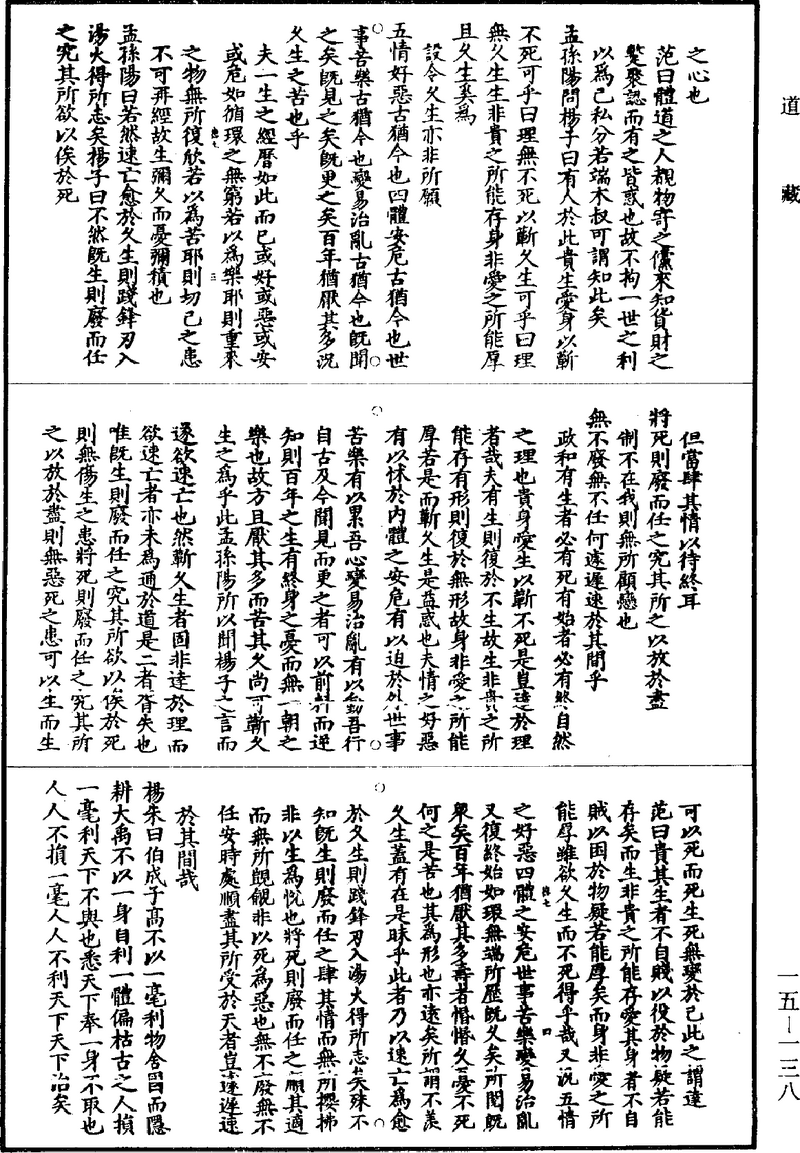 道藏
之心也
范曰體道之人視物寄之儻來知貨財之
蹔聚認而有之皆惑也故不拘一世之利
以為己私分若端木叔可謂知此矣
孟孫陽問楊子曰有人於此貴生愛身以蘄
不死可乎曰理無不死以蘄久生可乎曰理
無久生生非貴之所能存身非愛之所能厚
且久生奚為
設令久生亦非所願
五情好惡古猶今也四體安危古猶今也世
事苦樂古猶今也變易治亂古猶今也既聞
之矣既見之矣既更之矣百年猶厭其多況
久生之苦也乎
夫一生之經曆如此而已或好或惡或安
或危如循環之無窮若以為樂耶則重來
之物無所復欣若以為苦耶則切己之患
不可再經故生彌久而憂彌積也
孟孫陽曰若然速亡愈於久生則踐鋒刃入
湯火得所志矣楊子曰不然既生則廢而任
之究其所欲以俟於死
但當肆其情以待終耳
將死則廢而任之究其所之以放於盡
制不在我則無所顧戀也
無不廢無不任何遽遲速於其間乎
政和有生者必有死有始者必有終自然
之理也貴身愛生以蘄不死是豈達於理
者哉夫有生則復於不生故生非貴之所
能存有形則復於無形故身非愛之所能
厚若是而蘄久生是益惑也夫情之好惡
有以怵於內體之安危有以迫於外世事
苦樂有以累吾心變易治亂有以動吾行
自古及今聞見而更之者可以前料而逆
知則百年之生有終身之憂而無一朝之
樂也故方且厭其多而苦其久尚可蘄久
生之為乎此孟孫陽所以聞楊子之言而
遂欲速亡也然蘄久生者固非達於理而
欲速亡者亦未為通於道是二者胥失也
唯既生則廢而任之究其所欲以俟於死
則無傷生之患將死則廢而任之究其所
之以放於盡則無惡死之患可以生而生
可以死而死生死無變於己此之謂達
范曰貴其生者不自賤以役於物疑若能
存矣而生非貴之所能存愛其身者不自
賊以困於物疑若能厚矣而身非愛之所
能厚雖欲久生而不死得乎哉又況五情
之好惡四體之安危世事苦樂變易治亂
又復終始如環無端所歷既久矣所閱既
眾矣百年猶厭其多壽者惛惛久憂不死
何之是苦也其為形也亦遠矣所謂不羨
久生蓋有在是昧乎此者乃以速亡為愈
於久生則踐鋒刃入湯火得所志矣殊不
知既生則廢而任之肆其情而無所攖拂
非以生為悅也將死則廢而任之順其適
而無所覬覦非以死為惡也無不廢無不
任安時處順盡其所受於天者豈遽遲速
於其間哉
楊朱曰伯成子高不以一毫利物舍國而隱
耕大禹不以一身自利一體偏枯古之人損
一毫利天下不與也悉天下奉一身不取也
人人不損一毫人人不利天下天下治矣
一五—一三八